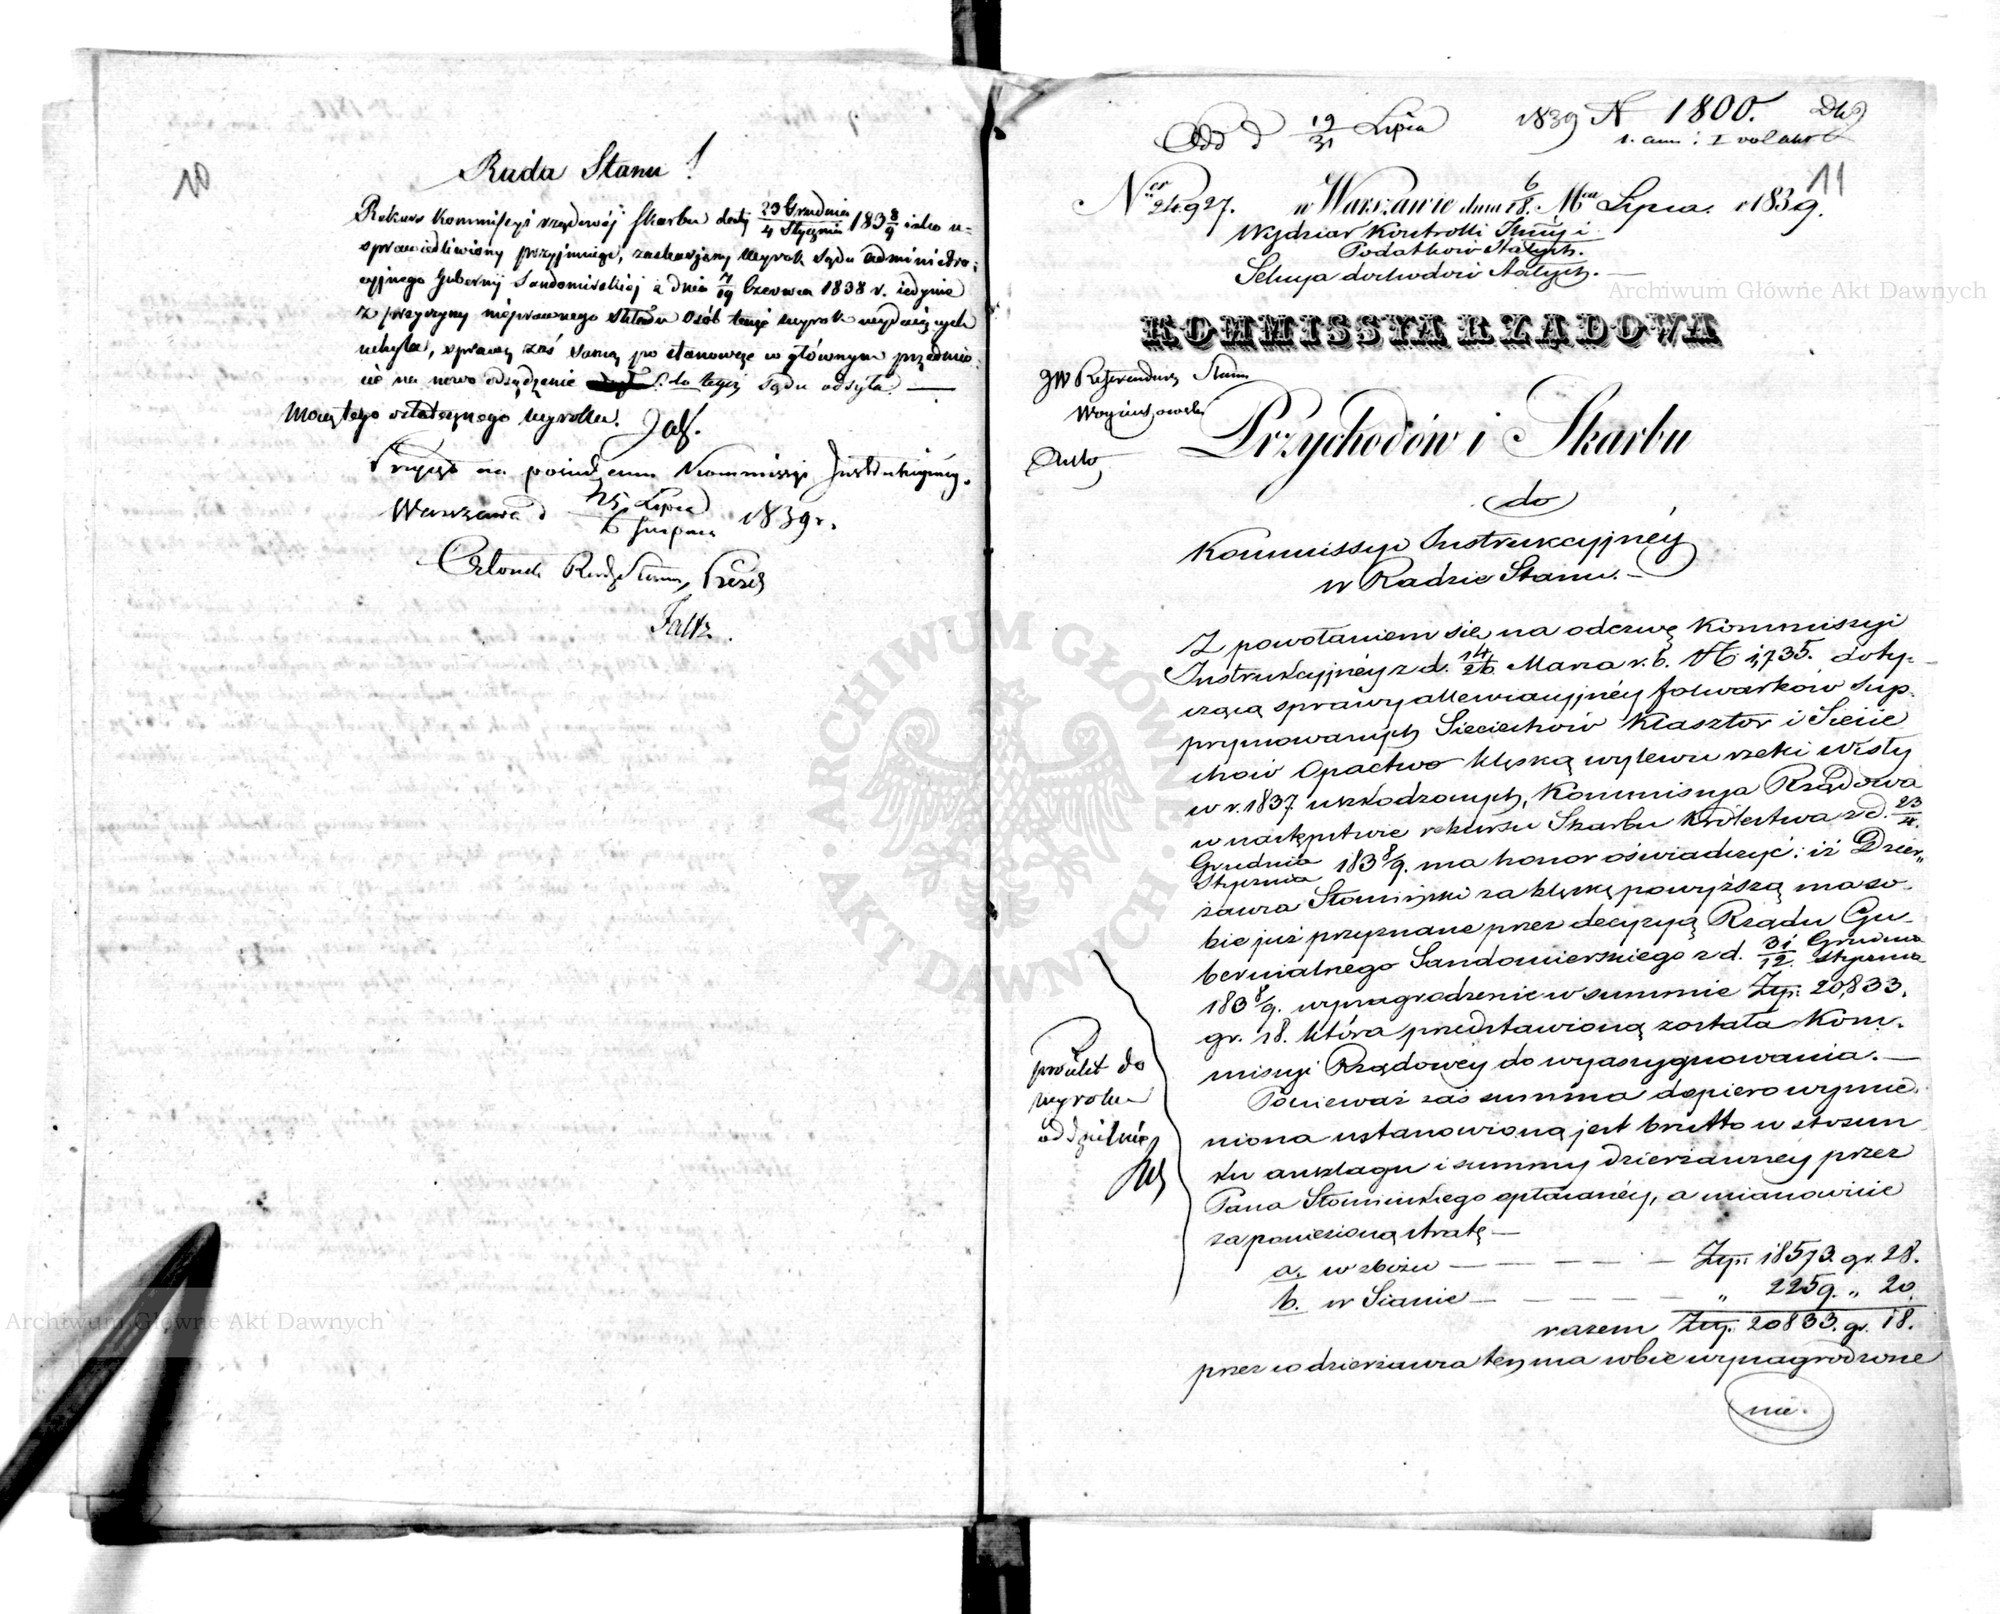 10
Rada Stanu!
Rekurs Kommissyi rządowéj Skarbu daty 23 Grudnia / 4 Stycznia 183 8/9 iako u-
sprawiedliwiony przyjmuiąc, zaskarżony wyrok Sądu Administra-
cyjnego Gubernij Sandomirskiéj z dnia 7/19 Czerwca 1838 r. iedynie
z przyczyny nieprawnego składu Osób tenże wyrok wydaiących
uchyla, sprawę zaś samą po stanowcze w głównym przedmio-
cie na nowo osądzenie do tegoż Sądu odsyła —
Mocą tego ostatecznego wyroku.
Przyięto na posiedzeniu Kommissyi Instrukcyjnéj.
Warszawa d 25 Lipca / 6 Sierpnia 1839 r.
Członek Rady Stanu, Prezes
Faltz.
Odd d 19/31 Lipca 1839 N 1800.
11
Nr 24927. w Warszawie dnia 6/18. Mca Lipca. r 1839.
Wydział Kontrolli Służby i
Podatków Stałych.
Sekcya dochodów Stałych. —
KOMMISSYA RZĄDOWA
JW Referendarz Stanu
Przychodów i Skarbu
do
Kommissyi Instrukcyjnéy
w Radzie Stanu. —
Z powołaniem się na odezwę Kommissyi
Instrukcyjnéy z d. 14/26 Marca r. b. N 1,735. doty-
czącą sprawy allewiacyjnéy folwarków sup-
prymowanych Sieciechów Klasztor i Siecie
chów Opactwo klęską wylewu rzeki Wisły
w r. 1837 uszkodzonych, Kommissya Rządowa
w następstwie rekursu Skarbu Królestwa z d. 23/4.
Grudnia / Stycznia 183 8/9. ma honor oświadczyć: iż Dzier„
żawca Słomiński za klęskę powyższą ma so-
bie już przyznane przez decyzyą Rządu Gu-
bernialnego Sandomierskiego z d. 31/12. Grudnia / Stycznia
183 8/9. wynagrodzenie w summie Złp: 20,833.
gr. 18. która przedstawioną została Kom-
missyi Rządowey do wyasygnowania. —
Ponieważ zaś summa dopiero wymie-
niona ustanowioną jest brutto w stosun
ku anszlagu i summy dzierżawney przez
Pana Słomińskiego opłacanéy, a mianowicie
za poniesioną stratę —
a. w zbożu — — — — — Złp: 18573. gr. 28.
b. w Sianie — — — — — „ 2259. „ 20.
razem Złp. 20833. gr. 18.
przez co dzierżawca ten ma sobie wynagrodzone
nie.
proiekt do
wyroku
oddzielnie